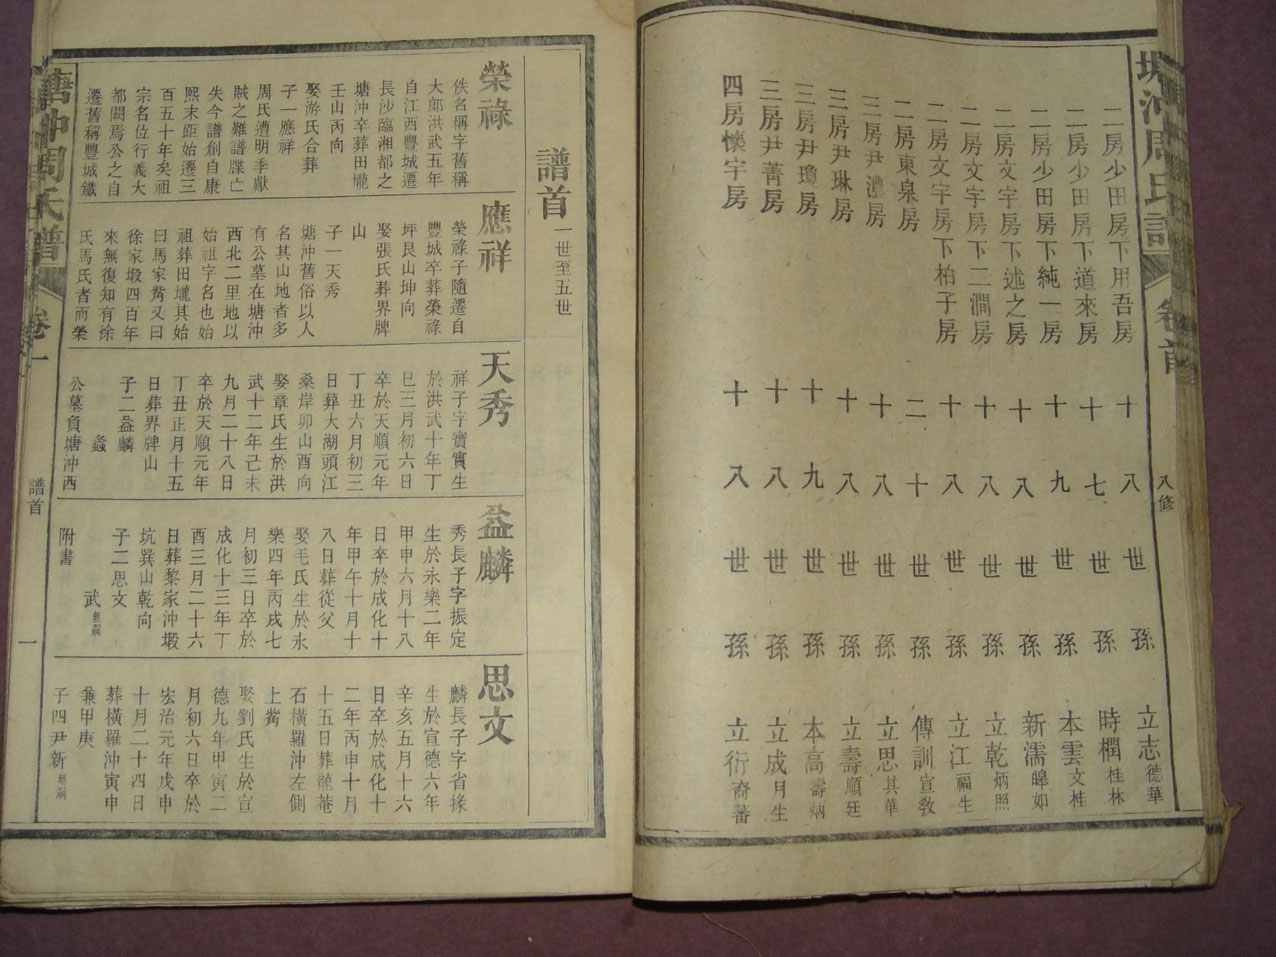 塘冲周氏譜
卷首
八修
二房少田房下用吾房 十八世孫 立志 德華
二房少田房下道來房 十七世孫 時棩 桂林
二房少田房下純一房 十九世孫 本雲 文桂
二房文宇房下述之房 十八世孫 新濡 皞如
二房文宇房下二澗房 十八世孫 立乾 炳照
二房文宇房下柏子房 十八世孫 立江 福生
二房東泉房 二十世孫 傳訓 宣教
三房尹濃房 十八世孫 立思 其華
三房尹琳房 十八世孫 立壽 順廷
三房尹瓊房 十九世孫 本高 壽炳
三房尹菁房 十八世孫 立成 月生
四房懷宇房 十八世孫 立衍 裔蕃
譜首 一世至五世
榮祿
佚名稱字舊稱
大郎洪武五年
自江西豐城遷
長沙臨湘都之
塘沖卒葬田壠
壬山丙向
娶游氏合葬
子一應祥
周氏遭明季獻
賊之難譜牒亡
失今譜創自康
熙末距始遷三
百五十年矣祖
宗名位行義大
都闕焉公之自
遷舊稱豐城鐵
應祥
榮祿子隨遷自
豐城卒葬榮祿
坪艮山坤向
娶張氏葬界牌
山
子一天秀
塘沖舊俗以人
名其山地者多
有公墓在塘沖
西北二里地以
始祖字名也始
祖葬田壠其始
曰馬家觜又曰
徐家塅四百年
來無復知有徐
氏馬氏者而榮
天秀
祥子字寶實生
於洪武十年丁
巳三月初六日
卒於天順元年
丁丑六月初三
日葬大湖頭江
桑岸卯山酉向
娶章氏生於洪
武十二年己未
九月二十八日
卒於天順元年
丁丑正月十五
日葬界牌山
子二益麟
益蟊
公墓負塘沖西
益麟
秀長子字振定
生於永樂二年
甲申六月十八
日卒於成化十
年甲午十月十
八日葬從父
娶毛氏生於永
樂四年丙戌七
月初三日卒於
成化十三年丁
酉三月二十六
日葬黎家沖塅
坑巽山乾向
子二思文
思武 無嗣
附書
思文
麟長子字省掾
生於宣德六年
辛亥五月十六
日卒於成化十
二年丙申十月
十五日葬龍菴
石橫羅沖左側
上觜
娶劉氏生於宣
德九年甲寅二
月初六日卒於
宏治元年戊申
十月二十四日
葬橫羅沖寅申
兼甲庚
子四尹新
唐沖周氏譜
卷一
譜首
一